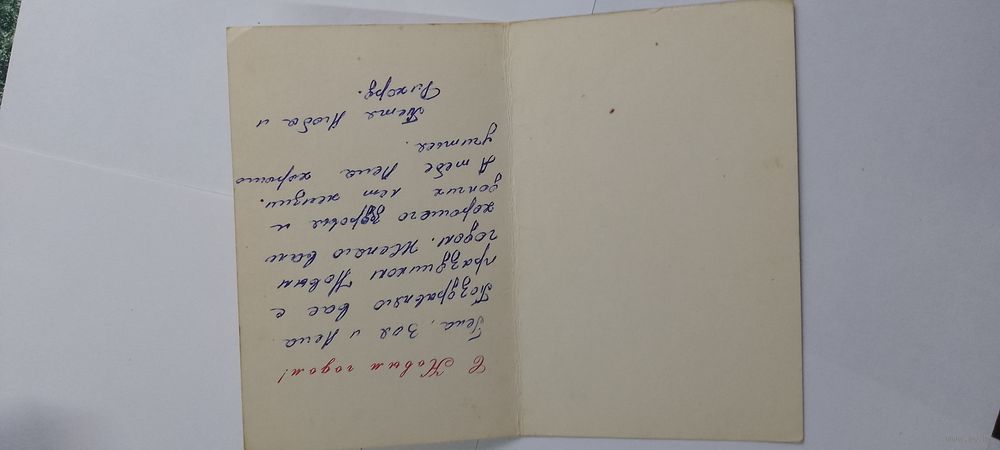 С Новым годом!
Гена, Зоя и Лена
Поздравляю вас с
праздником Новым
годом. Желаю вам
хорошего здоровья и
долгих лет жизни.
А тебе Лена хорошо
учиться.
Тетя Люба и
Рихард.